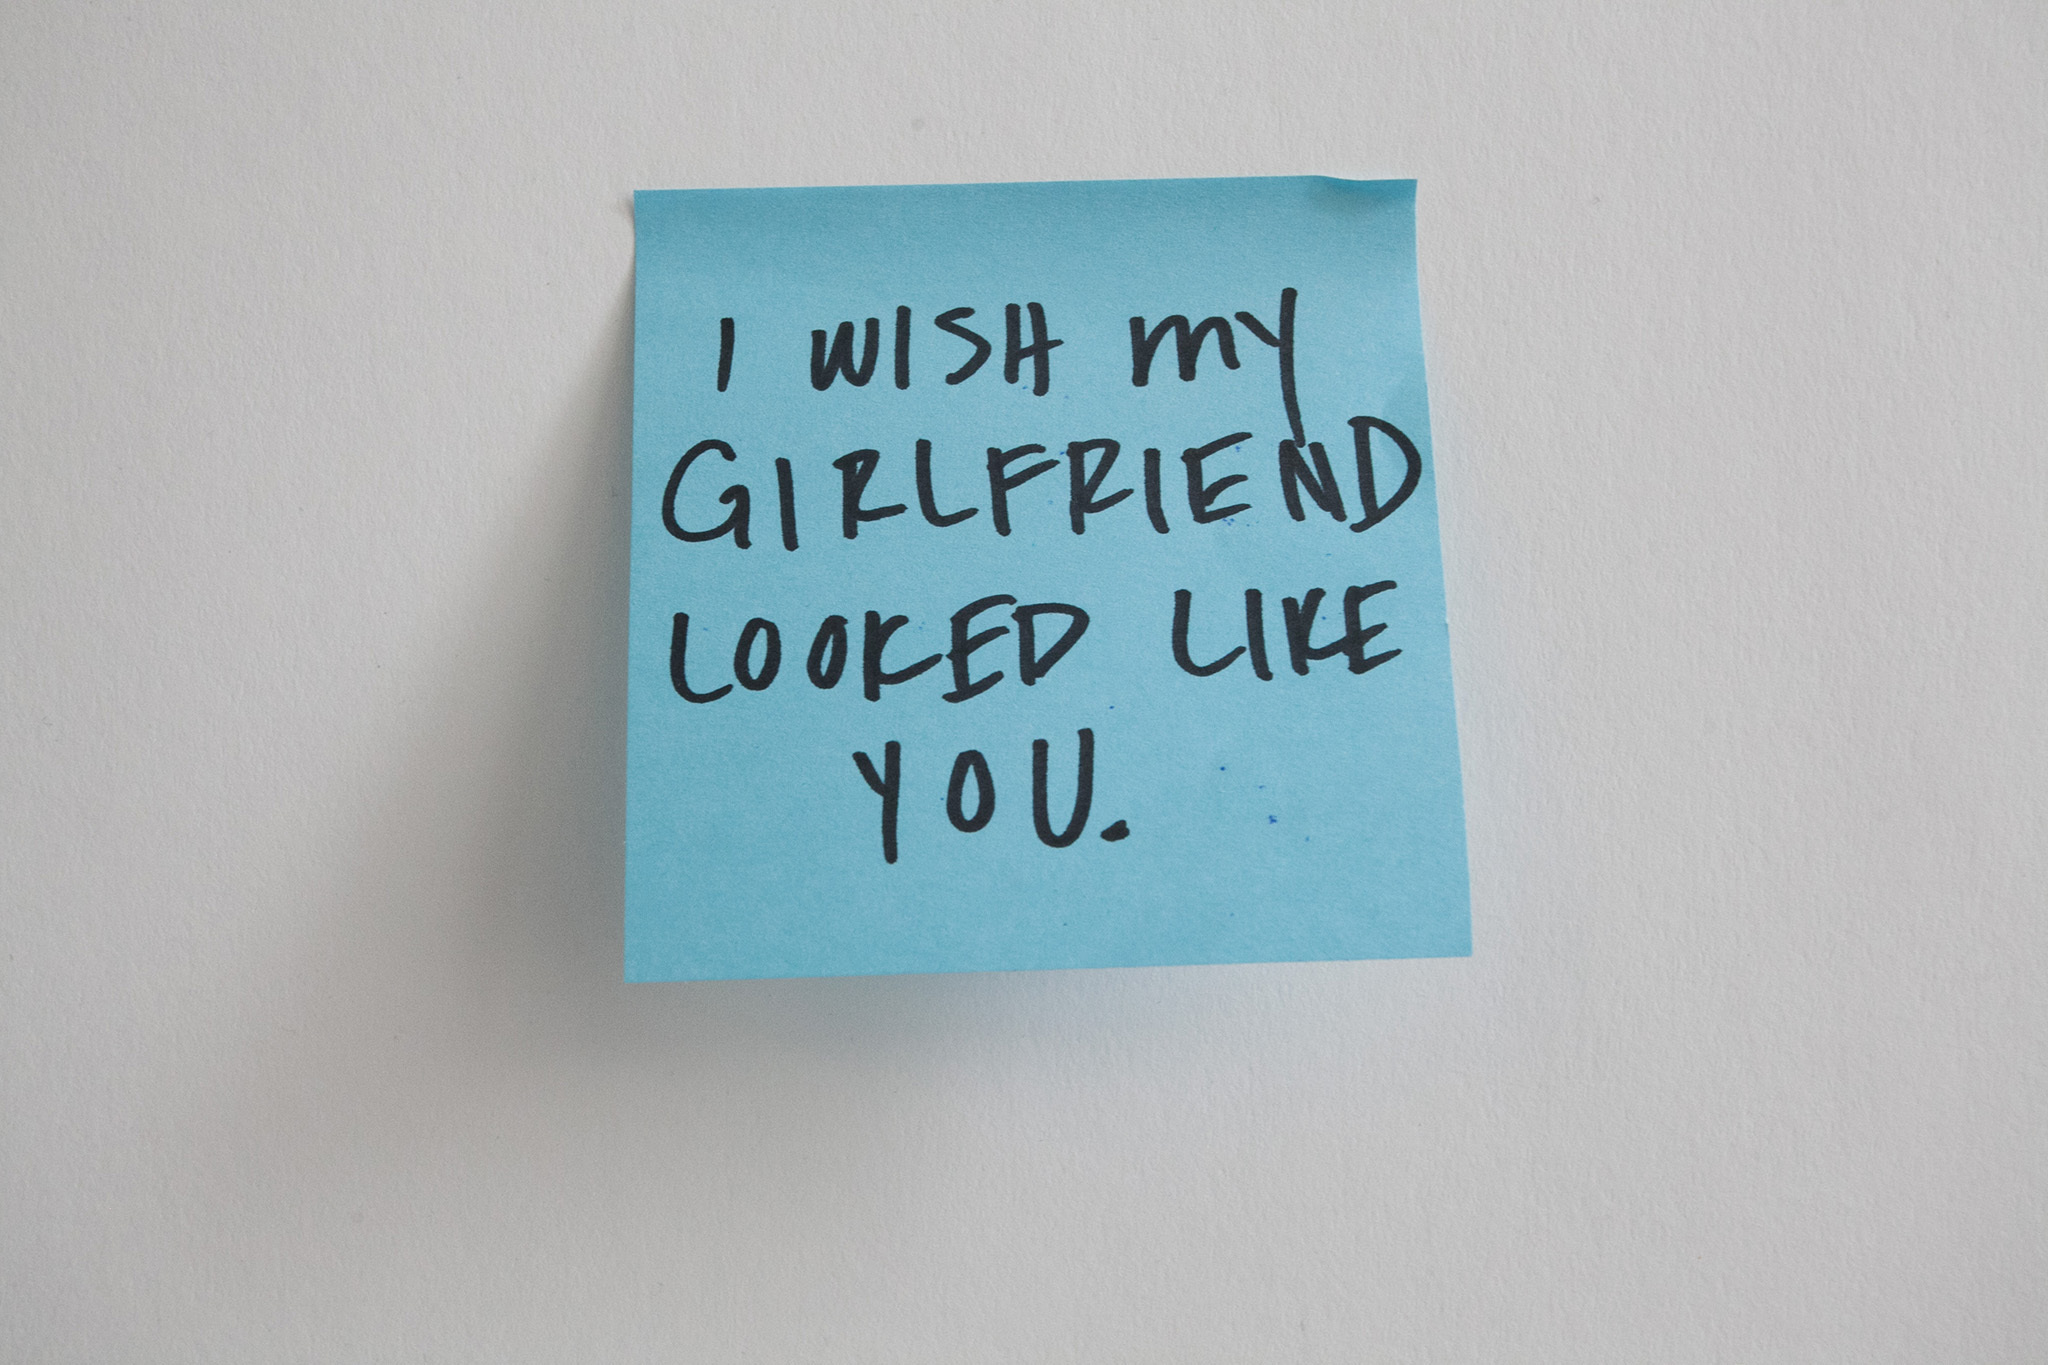 I WISH MY
GIRLFRIEND
LOOKED LIKE
YOU.